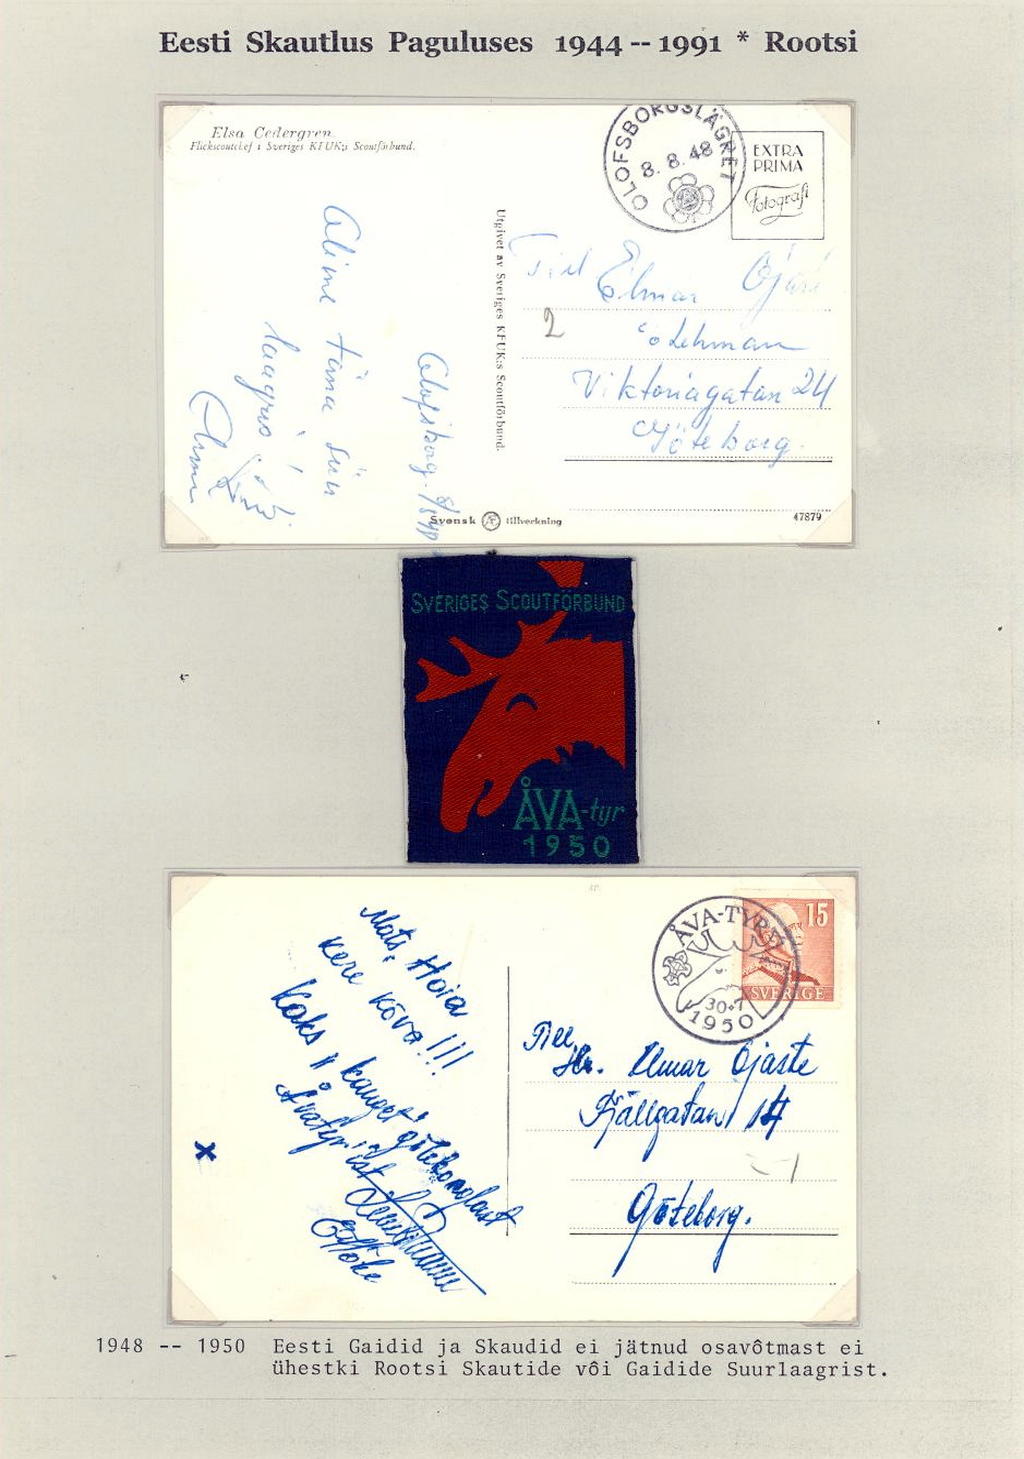 Eesti Skautlus Paguluses 1944 -- 1991 * Rootsi
Elsa Cedergren
Flickscoutchef i Sveriges KFUK:s Scoutförbund.
OLOFSBORGSLÄGRET
8. 8. 48
EXTRA
PRIMA
Fotografi
Olime täna siin
laagris!
Olofsborg. 8/8 48
Utgivet av Sveriges KFUK:s Scoutförbund.
Till Elmar Ojaste
2
c/o Lehman
Viktoriagatan 24
Göteborg.
Svensk tillverkning
47879
SVERIGES SCOUTFÖRBUND
ÅVA-tyr
1950
Mats, Hoia
kere kõva!!!
Kaks kanget götebonglast
Åvatyrist
ÅVA-TYR
30.7
1950
15
SVERIGE
Till
Hr. Elmar Ojaste
Fjällgatan 14
Göteborg.
x
1948 -- 1950 Eesti Gaidid ja Skaudid ei jätnud osavôtmast ei
ühestki Rootsi Skautide vôi Gaidide Suurlaagrist.